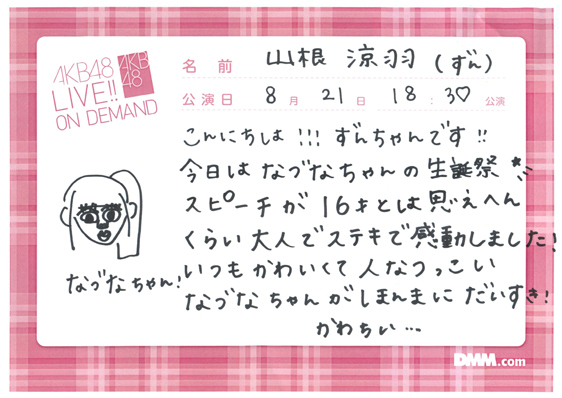 AKB48
LIVE!!
ON DEMAND
AKB
48
名前 山根 涼羽 (ずん)
公演日 8月 21日 18:30 公演
こんにちは!!! ずんちゃんです!!
今日は なづなちゃんの 生誕祭
スピーチが 16才とは思えへん
くらい 大人でステキで感動しました!
いつも かわいくて 人なつっこい
なづなちゃんがほんまに だいすき!
かわちい…
なづなちゃん!
DMM.com